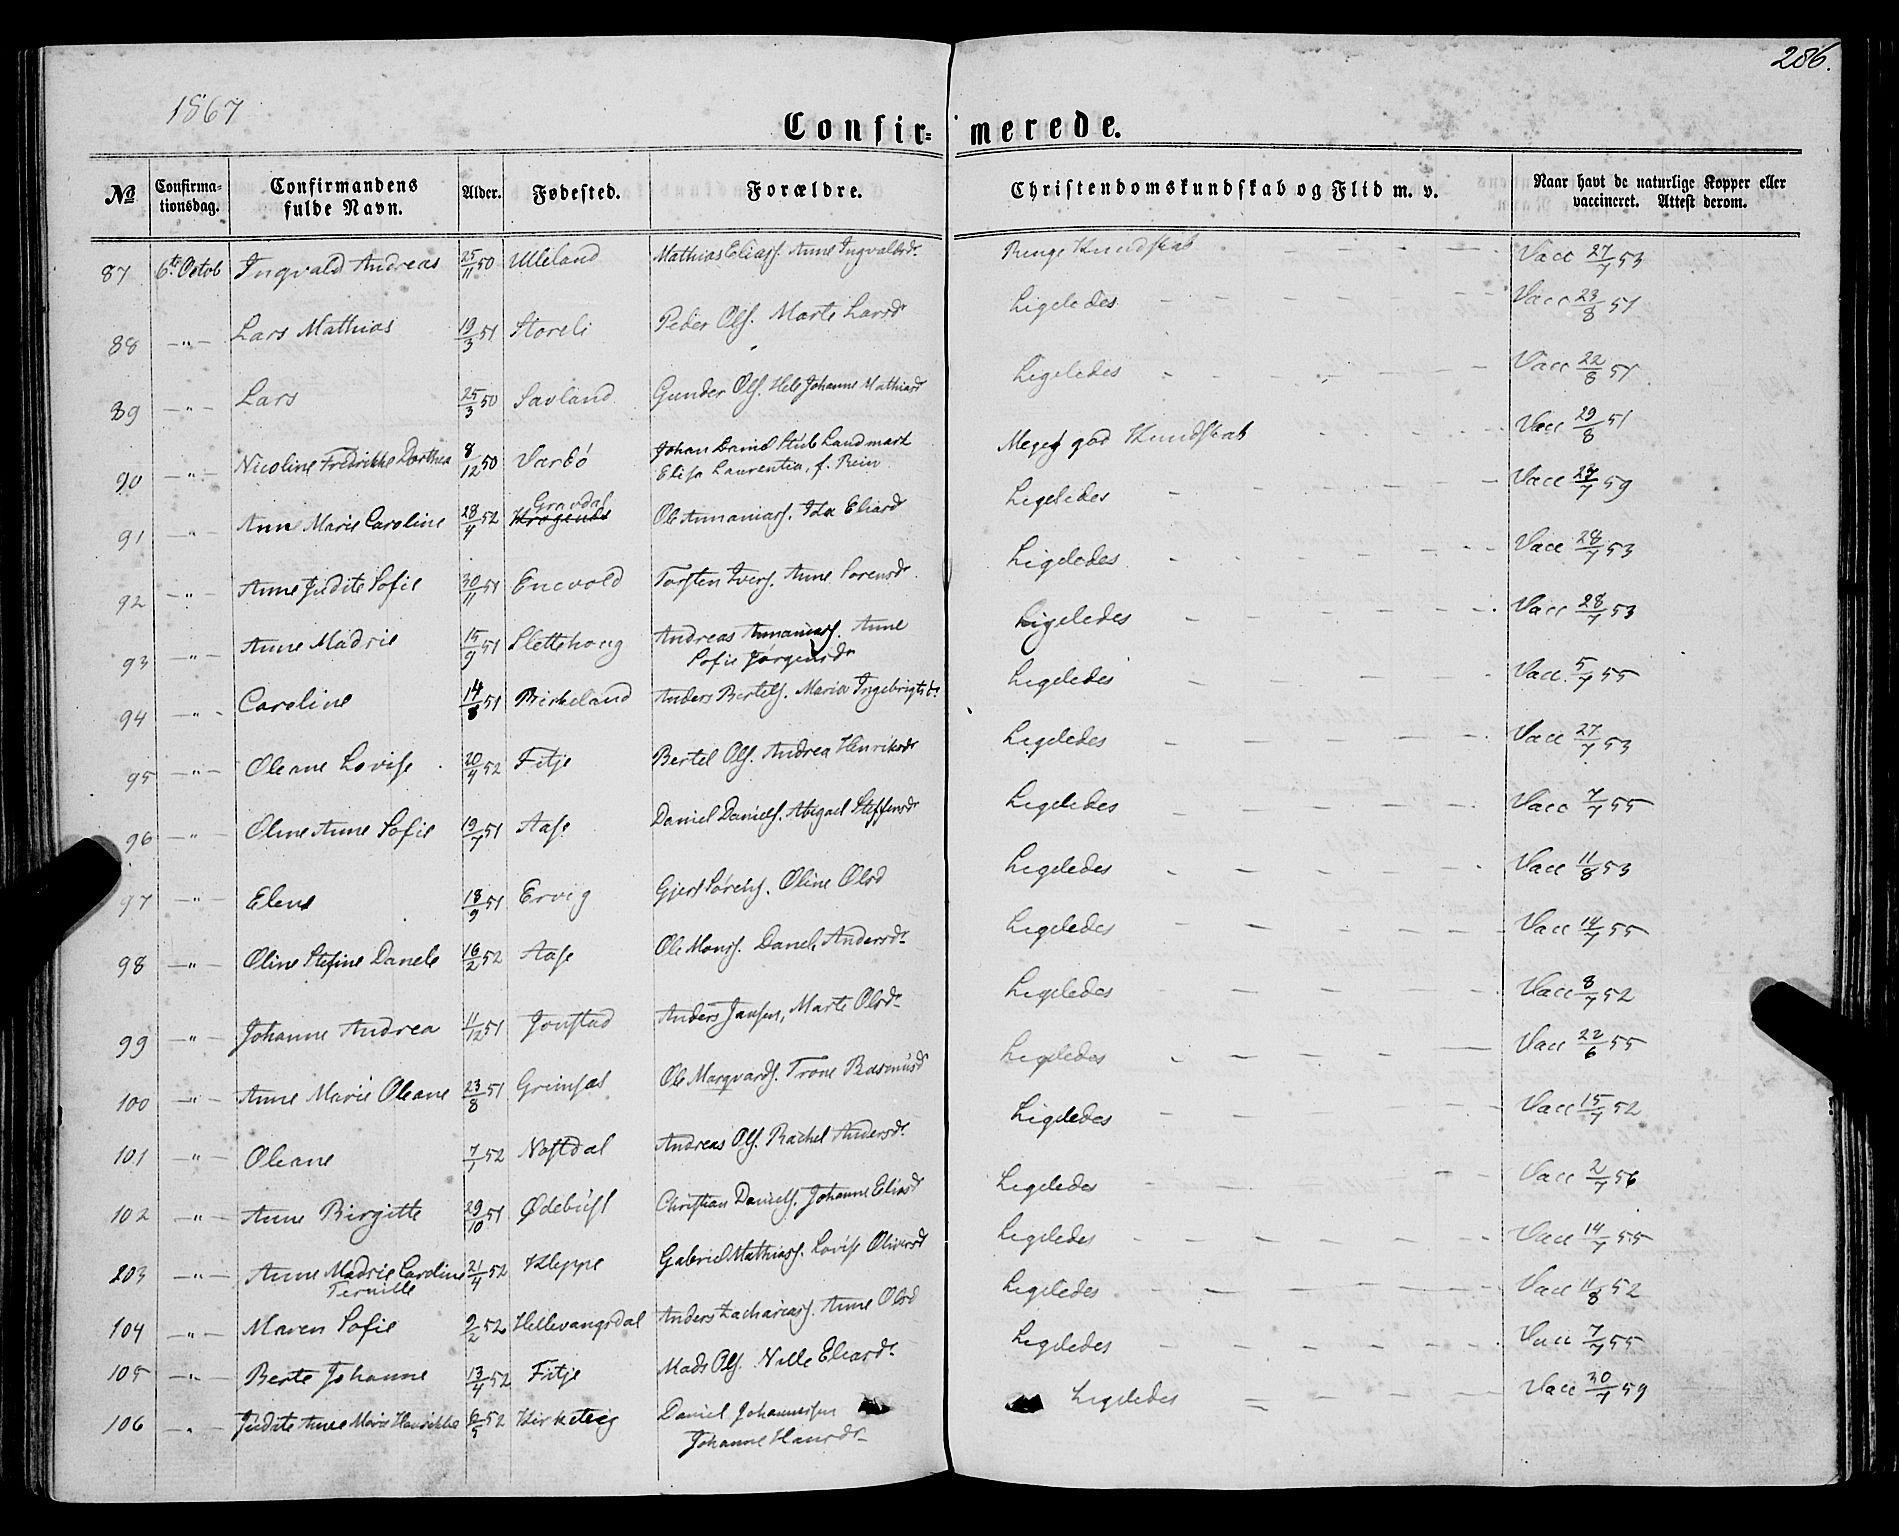 286.
1867
Confir- merede.
No Confirmationsdag. Confirmandens fulde Navn. Alder. Fødested. Forældre. Christendomskundskab og Flid m. v. Naar havt de naturlige Kopper eller vaccineret. Attest derom.
87 6te Octob Ingvald Andreas 25/11 50 Ulleland Mathias Eliass. Anne Ingvaldsdr. Ringe Kundskab Vacc 27/7 53
88 —"— Lars Mathias 19/3 51 Storeli Peder Ols. Marte Larsdr Ligeledes Vacc 23/8 51
89 —"— Lars 25/3 50 Savland Gunder Ols. Hele Johanne Mathiasdr Ligeledes Vacc 22/8 51
90 —"— Nicoline Fredrikke Dorthea 8/12 50 Vardø Johan Daniel Stub Landmark Meget god Kundskab Vacc 29/8 51
Elisa Laurentia, f. Rein
91 —"— Ann Marie Caroline 28/4 52 Krogenes Gravdal Ole Annanias. Ida Eliasd Ligeledes Vacc 27/7 59
92 —"— Anne Judite Sofie 30/11 51 Enevold Torsten Ivers. Anne Sorensdr Ligeledes Vacc 28/7 53
93 —"— Anne Madrie 15/9 51 Slettehoug Andreas Annanias. Anne Ligeledes Vacc 28/7 53
Sofie Jørgensdr
94 —"— Caroline 14/8 51 Birkeland Anders Bertels. Maria Ingebrigtsd. Ligeledes Vacc. 5/7 55
95 —"— Oleane Lovise 20/4 52 Fitje Bertel Ols. Andrea Henriksdr Ligeledes Vacc 27/7 53
96 —"— Oline Anne Sofie 19/7 51 Aase Daniel Daniels. Abigael Steffensdr Ligeledes Vacc 7/7 55
97 —"— Elene 18/9 51 Ervig Gjert Sørens. Oline Olsd Ligeledes Vacc 11/8 53
98 —"— Oline Stefine Danele 16/2 52 Aase Ole Mons. Danele Andersdr Ligeledes Vacc 14/7 55
99 —"— Johanne Andrea 11/12 51 Jonstad Anders Jansen, Marte Olsdr Ligeledes Vacc 8/7 52
100 —"— Anne Marie Oleane 23/8 51 Grimsæt Ole Marqvards. Trone Rasmusd Ligeledes Vacc 22/6 55
101 —"— Oleane 7/1 52 Nostdal Andreas Ols. Rachel Andersdr. Ligeledes Vacc 15/7 52
102 —"— Anne Birgitte 29/10 51 Ødebust Christian Daniels. Johanne Eliasd Ligeledes Vacc 2/7 56
203 —"— Anne Madsie Caroline 21/4 52 Kleppe Gabriel Mathias. Lovise Oliversd Ligeledes Vacc 14/7 55
Pernille
104 —"— Maren Sofie 9/2 52 Hellevangsdal Anders Zacharias. Anne Olsd Ligeledes Vacc 11/8 52
105 —"— Berte Johanne 13/4 52 Fitje Mads Ols. Nille Eliasdr Ligeledes Vacc 7/7 55
106 —"— Judite Anne Marie Henrikke 6/5 52 Kirketeig Daniel Johannessen Ligeledes Vacc 30/7 59
Johanne Hansdr